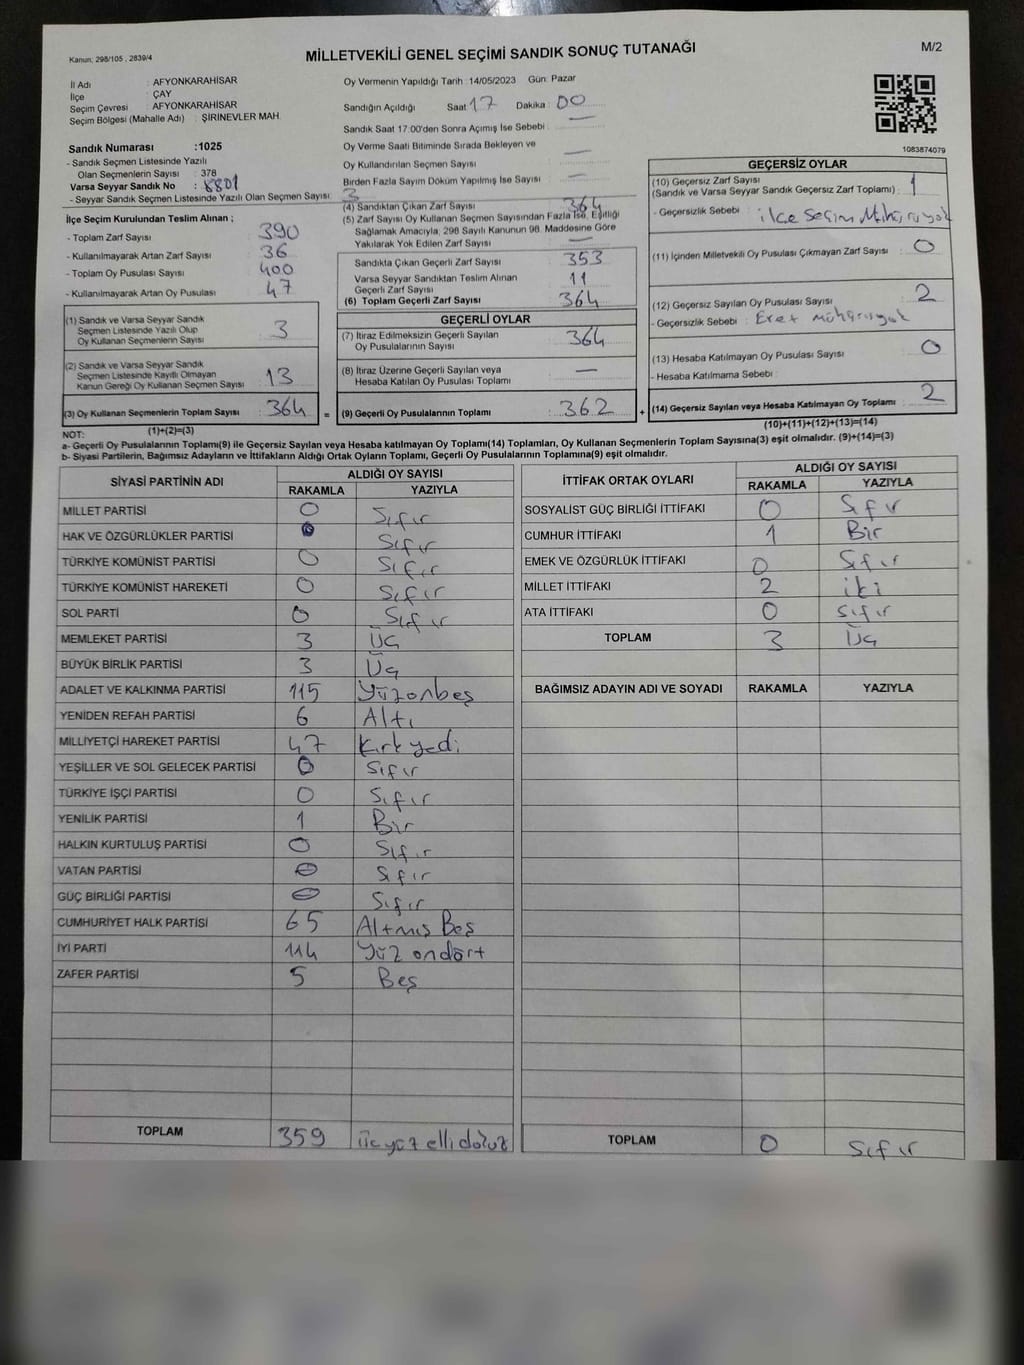 Kanun; 298/105 , 2839/4
MİLLETVEKİLİ GENEL SEÇİMİ SANDIK SONUÇ TUTANAĞI
M/2
İl Adı : AFYONKARAHİSAR
İlçe : ÇAY
Seçim Çevresi : AFYONKARAHİSAR
Seçim Bölgesi (Mahalle Adı) : ŞİRİNEVLER MAH.
Sandık Numarası :1025
- Sandık Seçmen Listesinde Yazılı
Olan Seçmenlerin Sayısı : 378
Varsa Seyyar Sandık No : 8801
- Seyyar Sandık Seçmen Listesinde Yazılı Olan Seçmen Sayısı : 3
İlçe Seçim Kurulundan Teslim Alınan ;
- Toplam Zarf Sayısı : 390
- Kullanılmayarak Artan Zarf Sayısı : 36
- Toplam Oy Pusulası Sayısı : 400
- Kullanılmayarak Artan Oy Pusulası : 47
(1) Sandık ve Varsa Seyyar Sandık
Seçmen Listesinde Yazılı Olup
Oy Kullanan Seçmenlerin Sayısı : 3
(2) Sandık ve Varsa Seyyar Sandık
Seçmen Listesinde Kayıtlı Olmayan
Kanun Gereği Oy Kullanan Seçmen Sayısı : 13
(3) Oy Kullanan Seçmenlerin Toplam Sayısı : 364 =
(1)+(2)=(3)
Oy Vermenin Yapıldığı Tarih :14/05/2023 Gün: Pazar
Sandığın Açıldığı Saat 17 Dakika : 00
Sandık Saat 17:00'den Sonra Açımış İse Sebebi : —
Oy Verme Saati Bitiminde Sırada Bekleyen ve
Oy Kullandırılan Seçmen Sayısı : —
Birden Fazla Sayım Döküm Yapılmış İse Sayısı : —
(4) Sandıktan Çıkan Zarf Sayısı : 364
(5) Zarf Sayısı Oy Kullanan Seçmen Sayısından Fazla İse, Eşitliği
Sağlamak Amacıyla, 298 Sayılı Kanunun 98. Maddesine Göre
Yakılarak Yok Edilen Zarf Sayısı : —
Sandıkta Çıkan Geçerli Zarf Sayısı : 353
Varsa Seyyar Sandıktan Teslim Alınan
Geçerli Zarf Sayısı : 11
(6) Toplam Geçerli Zarf Sayısı : 364
GEÇERLİ OYLAR
(7) İtiraz Edilmeksizin Geçerli Sayılan
Oy Pusulalarının Sayısı : 364
(8) İtiraz Üzerine Geçerli Sayılan veya
Hesaba Katılan Oy Pusulası Toplamı : —
(9) Geçerli Oy Pusulalarının Toplamı : 362 +
1083874079
GEÇERSİZ OYLAR
(10) Geçersiz Zarf Sayısı
(Sandık ve Varsa Seyyar Sandık Geçersiz Zarf Toplamı) : 1
- Geçersizlik Sebebi : ilce Seçim Mührü yok
(11) İçinden Milletvekili Oy Pusulası Çıkmayan Zarf Sayısı : 0
(12) Geçersiz Sayılan Oy Pusulası Sayısı : 2
- Geçersizlik Sebebi : Evet mührü yok
(13) Hesaba Katılmayan Oy Pusulası Sayısı : 0
- Hesaba Katılmama Sebebi :
(14) Geçersiz Sayılan veya Hesaba Katılmayan Oy Toplamı : 2
(10)+(11)+(12)+(13)=(14)
NOT:
a- Geçerli Oy Pusulalarının Toplamı(9) ile Geçersiz Sayılan veya Hesaba katılmayan Oy Toplamı(14) Toplamları, Oy Kullanan Seçmenlerin Toplam Sayısına(3) eşit olmalıdır. (9)+(14)=(3)
b- Siyasi Partilerin, Bağımsız Adayların ve İttifakların Aldığı Ortak Oyların Toplamı, Geçerli Oy Pusulalarının Toplamına(9) eşit olmalıdır.
SİYASİ PARTİNİN ADI ALDIĞI OY SAYISI
RAKAMLA YAZIYLA
MİLLET PARTİSİ 0 Sıfır
HAK VE ÖZGÜRLÜKLER PARTİSİ 0 Sıfır
TÜRKİYE KOMÜNİST PARTİSİ 0 Sıfır
TÜRKİYE KOMÜNİST HAREKETİ 0 Sıfır
SOL PARTİ 0 Sıfır
MEMLEKET PARTİSİ 3 Üç
BÜYÜK BİRLİK PARTİSİ 3 Üç
ADALET VE KALKINMA PARTİSİ 115 Yüzonbeş
YENİDEN REFAH PARTİSİ 6 Altı
MİLLİYETÇİ HAREKET PARTİSİ 47 Kırkyedi
YEŞİLLER VE SOL GELECEK PARTİSİ 0 Sıfır
TÜRKİYE İŞÇİ PARTİSİ 0 Sıfır
YENİLİK PARTİSİ 1 Bir
HALKIN KURTULUŞ PARTİSİ 0 Sıfır
VATAN PARTİSİ 0 Sıfır
GÜÇ BİRLİĞİ PARTİSİ 0 Sıfır
CUMHURİYET HALK PARTİSİ 65 Altmış Beş
İYİ PARTİ 114 Yüz ondört
ZAFER PARTİSİ 5 Beş
TOPLAM 359 üçyüz ellidokuz
İTTİFAK ORTAK OYLARI ALDIĞI OY SAYISI
RAKAMLA YAZIYLA
SOSYALİST GÜÇ BİRLİĞİ İTTİFAKI 0 Sıfır
CUMHUR İTTİFAKI 1 Bir
EMEK VE ÖZGÜRLÜK İTTİFAKI 0 Sıfır
MİLLET İTTİFAKI 2 iki
ATA İTTİFAKI 0 sıfır
TOPLAM 3 Üç
BAĞIMSIZ ADAYIN ADI VE SOYADI RAKAMLA YAZIYLA
TOPLAM 0 Sıfır